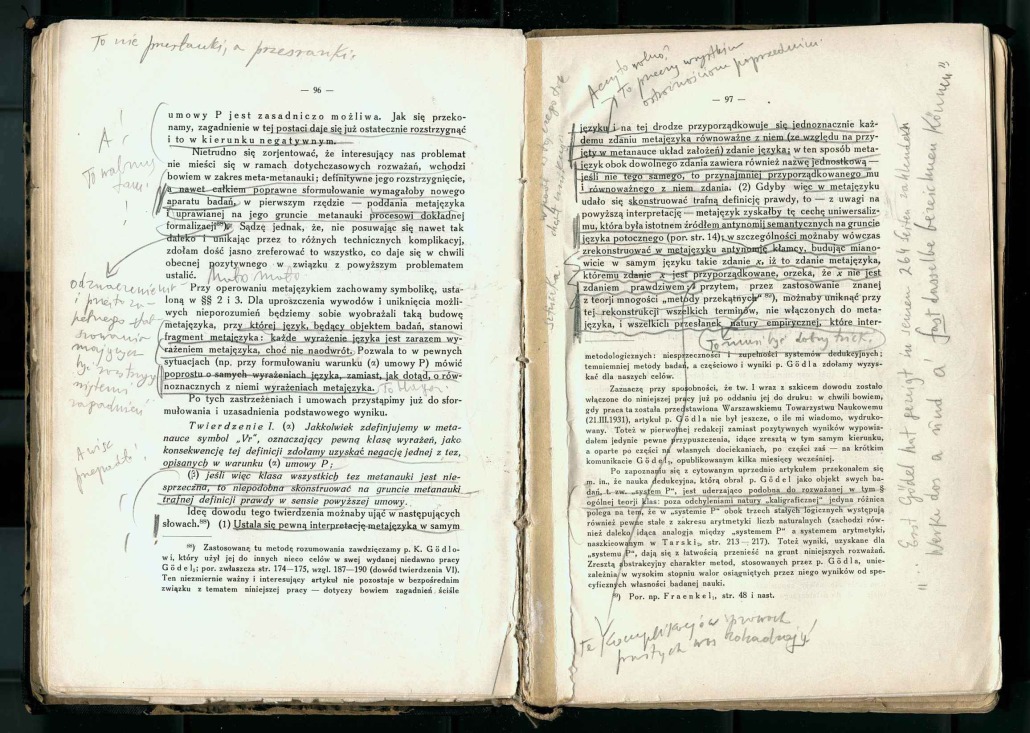 To nie przesłanki, a przesranki.
— 96 —
umowy P jest zasadniczo możliwa. Jak się przeko-
namy, zagadnienie w tej postaci daje się już ostatecznie rozstrzygnąć
i to w kierunku negatywnym.
Nietrudno się zorjentować, że interesujący nas problemat
nie mieści się w ramach dotychczasowych rozważań, wchodzi
bowiem w zakres meta-metanauki; definitywne jego rozstrzygnięcie,
a nawet całkiem poprawne sformułowanie wymagałoby nowego
aparatu badań, w pierwszym rzędzie — poddania metajęzyka
i uprawianej na jego gruncie metanauki procesowi dokładnej
formalizacji. Sądzę jednak, że, nie posuwając się nawet tak
daleko i unikając przez to różnych technicznych komplikacyj,
zdołam dość jasno zreferować to wszystko, co daje się w chwili
obecnej pozytywnego w związku z powyższym problematem
ustalić.
Przy operowaniu metajęzykiem zachowamy symbolikę, usta-
loną w §§ 2 i 3. Dla uproszczenia wywodów i uniknięcia możli-
wych nieporozumień będziemy sobie wyobrażali taką budowę
metajęzyka, przy której język, będący objektem badań, stanowi
fragment metajęzyka: każde wyrażenie języka jest zarazem wy-
rażeniem metajęzyka, choć nie naodwrót. Pozwala to w pewnych
sytuacjach (np. przy formułowaniu warunku (α) umowy P) mówić
poprostu o samych wyrażeniach języka, zamiast, jak dotąd, o rów-
noznacznych z niemi wyrażeniach metajęzyka.
Po tych zastrzeżeniach i umowach przystąpimy już do sfor-
mułowania i uzasadnienia podstawowego wyniku.
Twierdzenie I. (α) Jakkolwiek zdefinjujemy w meta-
nauce symbol „Vr", oznaczający pewną klasę wyrażeń, jako
konsekwencję tej definicji zdołamy uzyskać negację jednej z tez,
opisanych w warunku (α) umowy P;
(β) jeśli więc klasa wszystkich tez metanauki jest nie-
sprzeczna, to niepodobna skonstruować na gruncie metanauki
trafnej definicji prawdy w sensie powyższej umowy.
Ideę dowodu tego twierdzenia możnaby ująć w następujących
słowach.⁸⁸) (1) Ustala się pewną interpretację metajęzyka w samym
⁸⁸) Zastosowanę tu metodę rozumowania zawdzięczamy p. K. Gödlo-
wi, który użył jej do innych nieco celów w swej wydanej niedawno pracy
Gödel₁; por. zwłaszcza str. 174—175, wzgl. 187—190 (dowód twierdzenia VI).
Ten niezmiernie ważny i interesujący artykuł nie pozostaje w bezpośrednim
związku z tematem niniejszej pracy — dotyczy bowiem zagadnień ściśle
A czy to wolno?
— 97 —
języku i na tej drodze przyporządkowuje się jednoznacznie każ-
demu zdaniu metajęzyka równoważne z niem (ze względu na przy-
jęty w metanauce układ założeń) zdanie języka; w ten sposób meta-
język obok dowolnego zdania zawiera również nazwę jednostkową —
jeśli nie tego samego, to przynajmniej przyporządkowanego mu
i równoważnego z niem zdania. (2) Gdyby więc w metajęzyku
udało się skonstruować trafną definicję prawdy, to — z uwagi na
powyższą interpretację — metajęzyk zyskałby tę cechę uniwersaliz-
mu, która była istotnem źródłem antynomij semantycznych na gruncie
języka potocznego (por. str. 14); w szczególności możnaby wówczas
zrekonstruować w metajęzyku antynomię kłamcy, budując miano-
wicie w samym języku takie zdanie x, iż to zdanie metajęzyka,
któremu zdanie x jest przyporządkowane, orzeka, że x nie jest
zdaniem prawdziwem; przytem, przez zastosowanie znanej
z teorji mnogości „metody przekątnych" ⁸⁹), możnaby uniknąć przy
tej rekonstrukcji wszelkich terminów, nie włączonych do meta-
języka, i wszelkich przesłanek natury empirycznej, które inter-
metodologicznych: niesprzeczności i zupełności systemów dedukcyjnych;
temniemniej metody badań, a częściowo i wyniki p. Gödla zdołamy wyzys-
kać dla naszych celów.
Zaznaczę przy sposobności, że tw. I wraz z szkicem dowodu zostało
włączone do niniejszej pracy już po oddaniu jej do druku: w chwili bowiem,
gdy praca ta została przedstawiona Warszawskiemu Towarzystwu Naukowemu
(21.III.1931), artykuł p. Gödla nie był jeszcze, o ile mi wiadomo, wydruko-
wany. Toteż w pierwotnej redakcji zamiast pozytywnych wyników wypowia-
dałem jedynie pewne przypuszczenia, idące zresztą w tym samym kierunku,
a oparte po części na własnych dociekaniach, po części zaś — na krótkim
komunikacie Gödel₁, opublikowanym kilka miesięcy wcześniej.
Po zapoznaniu się z cytowanym uprzednio artykułem przekonałem się
m. in., że nauka dedukcyjna, którą obrał p. Gödel jako objekt swych ba-
dań, t. zw. „system P", jest uderzająco podobna do rozważanej w tym §
ogólnej teorji klas: poza odchyleniami natury „kaligraficznej" jedyna różnica
polega na tem, że w „systemie P" obok trzech stałych logicznych występują
również pewne stałe z zakresu arytmetyki liczb naturalnych (zachodzi rów-
nież daleko idąca analogja między „systemem P" a systemem arytmetyki,
naszkicowanym w Tarski₅, str. 213—217). Toteż wyniki, uzyskane dla
„systemu P", dają się z łatwością przenieść na grunt niniejszych rozważań.
Zresztą abstrakcyjny charakter metod, stosowanych przez p. Gödla, unie-
zależnia w wysokim stopniu walor osiągniętych przez niego wyników od spe-
cyficznych własności badanej nauki.
⁸⁹) Por. np. Fraenkel₁, str. 48 i nast.